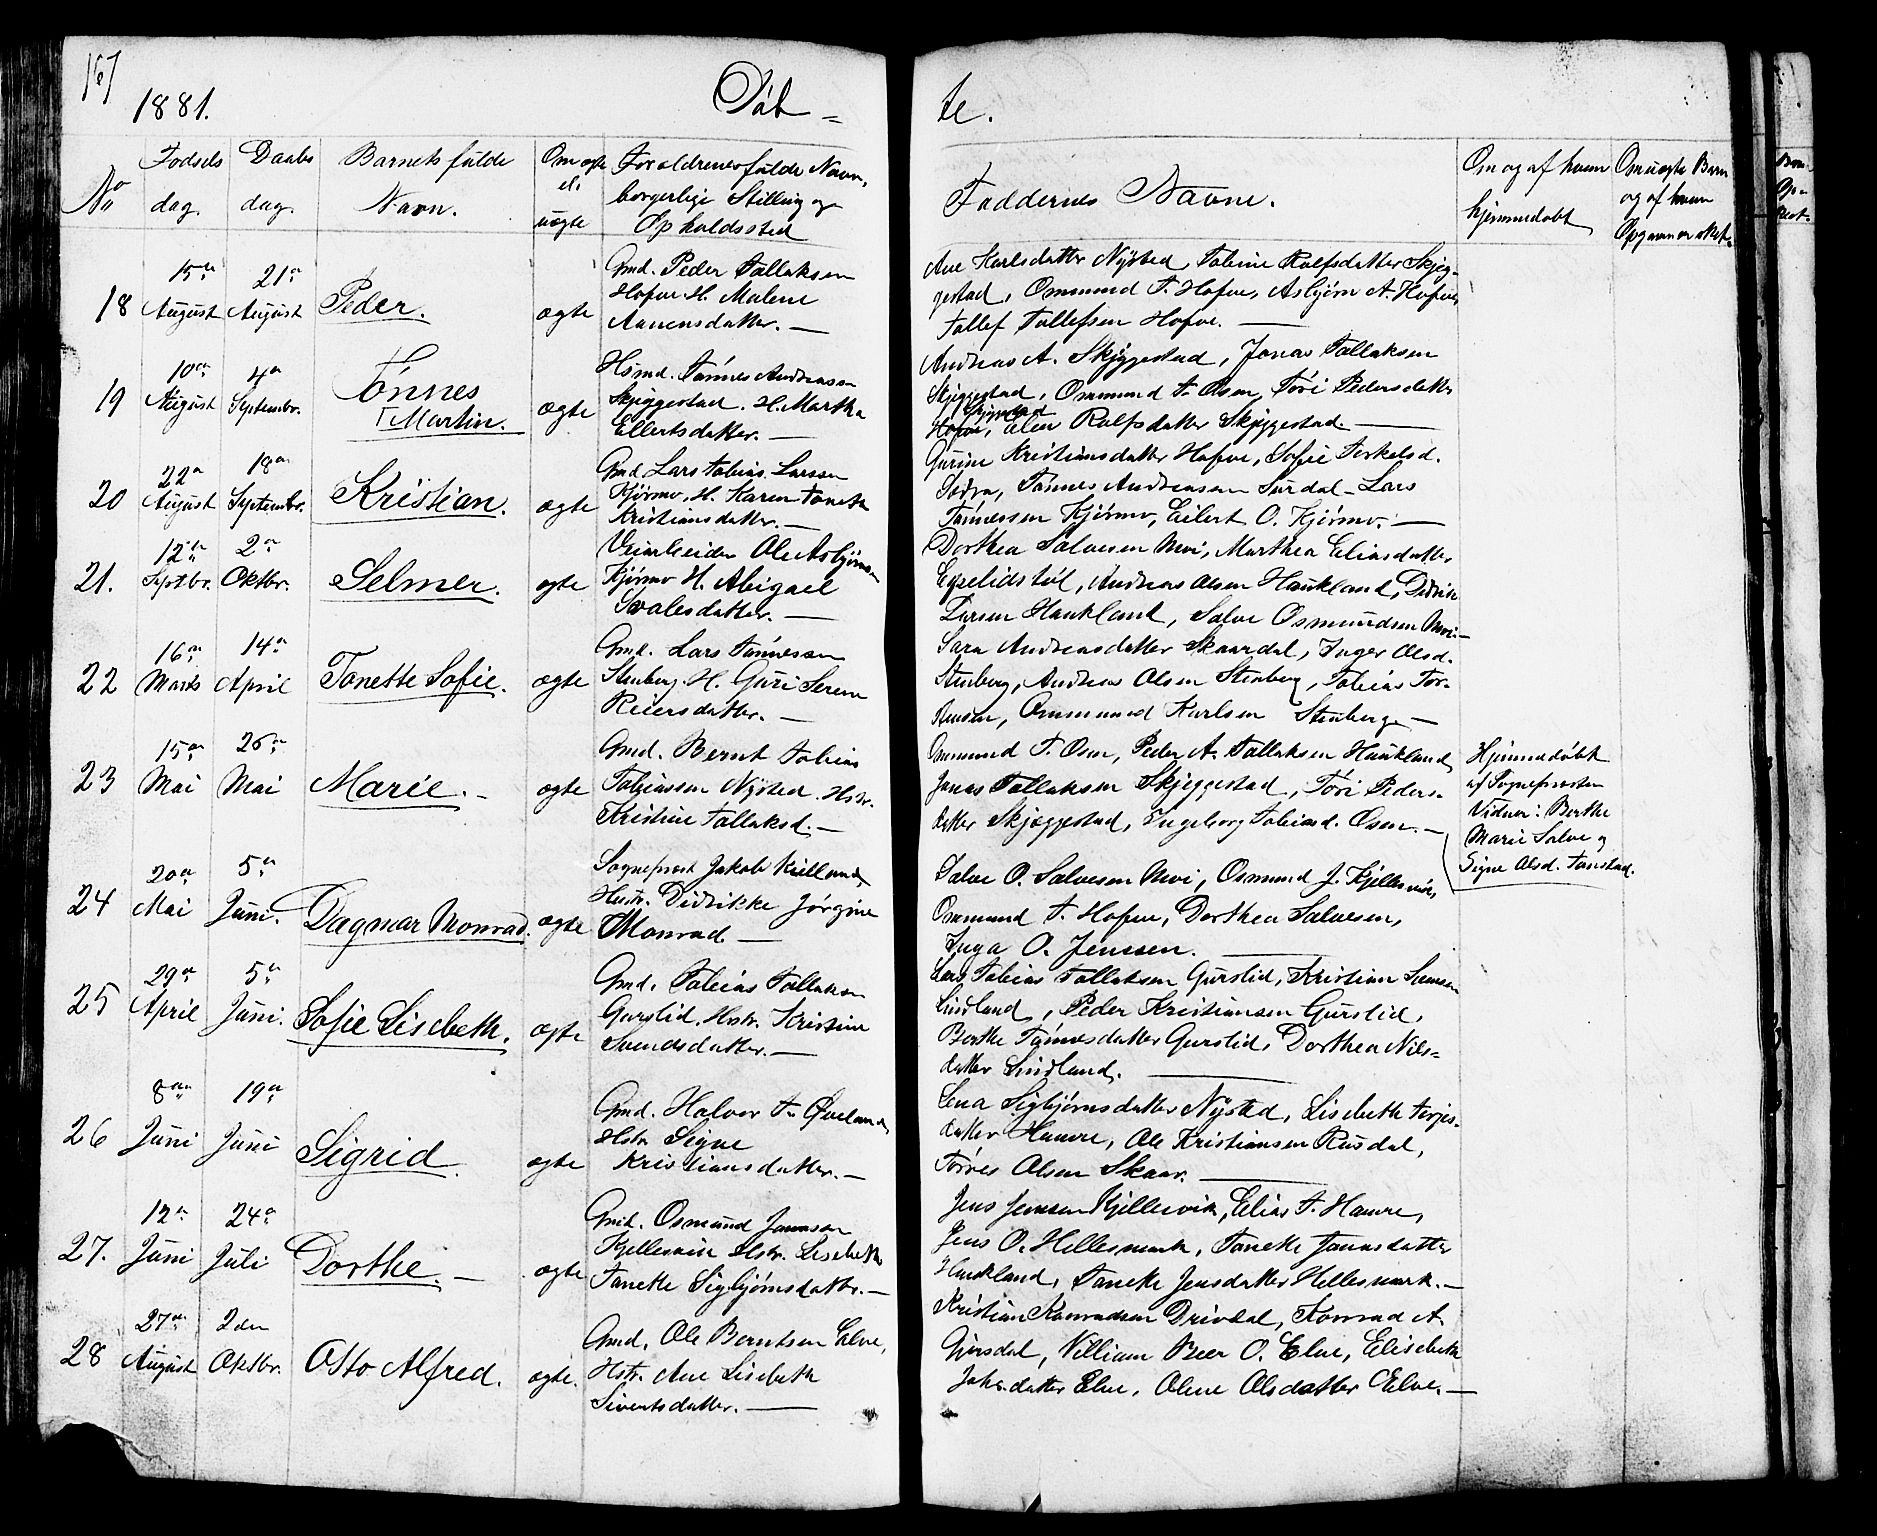 167
1881. Döb = te.
No
Fødsels dag.
Daabs dag.
Barnets fulde Navn.
Om ægte el. uægte
Forældrenes fulde Navn, borgerlige Stilling og Opholdssted
Faddernes Navne.
Om og af hvem hjemmedøbt
Om uægte Barn og af hvem Opgaven er sket.
18 15de August 21de August Peder. ægte
Gmd. Peder Tollaksen
Hofve H. Malene
Aanensdatter. —
Ane Karlsdatter Nysted, Tobine Rolfsdatter Skjeg-
gestad, Ommund T. Hofve, Asbjørn A. Hofve,
Tollef Tollefsen Hofve. —
19 10de August 4de Septembr. Tønnes Martin. ægte
Hsmd. Tønnes Andreassen
Skjeggestad. H. Martha
Ellertsdatter. —
Andreas A. Skjeggestad, Jonas Tollaksen
Skjeggestad, Ommund T. Osen, Töri Pedersdatter
Skjeggestad
Hofve, Elen Rolfsdatter Skjeggestad. —
20 22de August 18de Septembr. Kristian. ægte
Gmd. Lars Tobias Larssen
Kjørmo. H. Karen Tonette
Kristiansdatter. —
Gurine Kristiansdatter Hofve, Sofie Terkelsd.
Tønnes Andreassen Surdal, Lars
Tønnessen Kjørmo, Eilert O. Kjørmo. —
21. 12te Septbr. 2de Oktbr. Selmer. ægte
Veiarbeider Ole Asbjørnsen
Kjørmo H. Abigael
Svalesdatter. —
Dorthea Salvesen Moi, Marthea Eliasdatter
Egelidstøl, Andreas Olsen Haukland, Didrik
Larsen Haukland, Salve Osmundsen Moi. —
22 16de Marts 14de April Tonette Sofie. ægte
Gmd. Lars Tønnessen
Stenberg. H. Guri Serene
Reiersdatter. —
Sara Andreasdatter Skaardal, Inger Olsd.
Stenberg, Andreas Olsen Stenberg, Tobias Tor-
kensen, Ommund Karlsen Stenberg. —
23 15de Mai 26de Mai Marie. — ægte
Gmd. Bernt Tobias
Tobiassen Nysted. Hstr.
Kristine Tollaksd. —
Ommund T. Osen, Peder A. Tollaksen Haukland,
Jonas Tollaksen Skjeggestad, Töri Peders-
datter Skjæggestad, Ingeborg Tobiasd. Osen. —
Hjemmedøbt
af Sognepræsten
Vidner: Berthe
Marie Salve og
Signe Olsd. Tonstad.
24 20de Mai 5te Juni. Dagmar Monrad. ægte
Sogneprest Jakob Kielland,
Hustr. Didrikke Jørgine
Monrad. —
Salve O. Salvesen Moi, Osmund J. Kjellesvik,
Ommund T. Hofve, Dorthea Salvesen,
Inga O. Jenssen. —
25 29de April 5te Juni. Sofie Lisebeth. ægte
Gmd. Tobias Tollaksen
Gurslid. Hstr. Kristine
Svendsdatter. —
Lars Tobias Tollaksen Gurslid, Kristian
Lindland, Peder Kristiansen Gurslid,
Berthe Tønnesdatter Gurslid, Dorthea Nils=
datter Lindland. —
26 8de Juni 19de Juni Sigrid. ægte
Gmd. Halvor T. Øveland,
Hstr. Signe
Kristiansdatter. —
Lena Sigbjørnsdatter Nysted, Lisebeth Terjes-
datter Hamre, Ole Kristiansen Rusdal,
Tørres Olsen Skaar. —
27. 12te Juni 24de Juli Dorthe. — ægte
Gmd. Osmund Jonassen
Kjellesvik Hstr. Lisebeth
Taneke Sigbjørnsdatter. —
Jens Jenssen Kjellesvik, Elias T. Hamre,
Jens O. Hellesmark, Taneke Jonasdatter
Haukland, Taneke Jensdatter Hellesmark. —
28 27de August 2den Oktbr. Otto Alfred. ægte.
Gmd. Ole Berntsen Elve,
Hstr. Ane Lisebeth
Sivertsdatter. —
Kristian Konradsen Drivdal, Konrad A.
Gursdal, Villiam Peer O. Elve, Elisebeth
Johs.datter Elve, Olene Olsdatter Elve. —